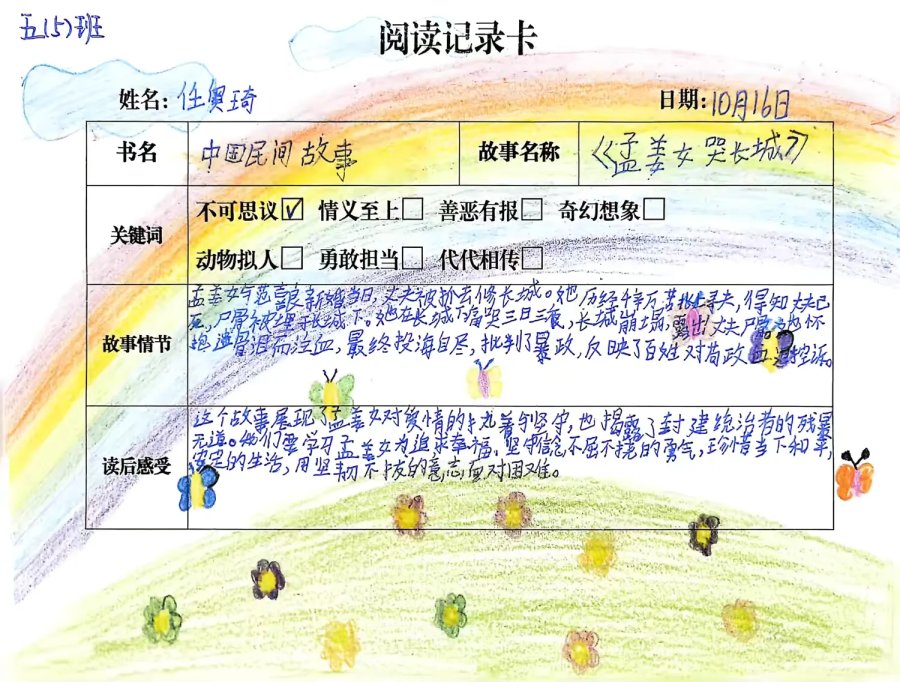 五(5)班
阅读记录卡
姓名: 任奥琦
日期: 10月16日
书名 中国民间故事 故事名称 《孟姜女哭长城》
关键词
不可思议☑ 情义至上☐ 善恶有报☐ 奇幻想象☐
动物拟人☐ 勇敢担当☐ 代代相传☐
故事情节
孟姜女与范喜良新婚当日,丈夫被抓去修长城。她历经千辛万苦北上寻夫,得知丈夫已
死,尸骨被埋于长城下。她在长城下痛哭三日三夜,长城崩塌,露出丈夫尸骨。
抱遗骨泪而泣血,最终投海自尽,批判了暴政,反映了百姓对苛政血泪控诉。
读后感受
这个故事展现了孟姜女对爱情的执着与坚守,也揭露了封建统治者的残暴
无道。我们要学习孟姜女为追求幸福,坚守信念不屈不挠的勇气,珍惜当下和平,
安定的生活,用坚韧不拔的意志面对困难。